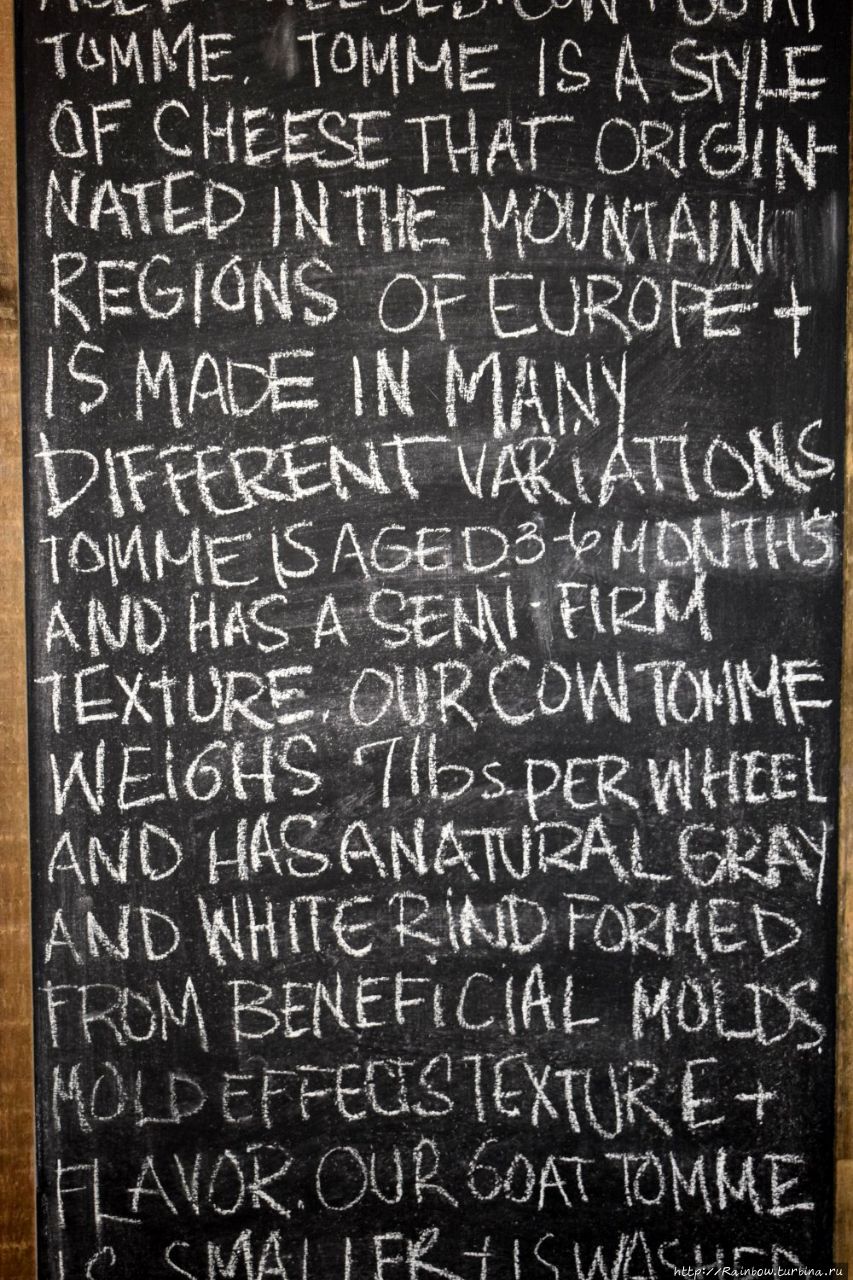 TOMME. TOMME IS A STYLE
OF CHEESE THAT ORIGIN-
NATED IN THE MOUNTAIN
REGIONS OF EUROPE +
IS MADE IN MANY
DIFFERENT VARIATIONS.
TOMME IS AGED 3-6 MONTHS
AND HAS A SEMI-FIRM
TEXTURE. OUR COW TOMME
WEIGHS 7lbs PER WHEEL
AND HAS A NATURAL GRAY
AND WHITE RIND FORMED
FROM BENEFICIAL MOLDS.
MOLD EFFECTS TEXTURE +
FLAVOR. OUR GOAT TOMME
IS SMALLER + IS WASHED
http://Rainbow.turbina.ru